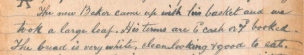 The new Baker came up with his basket and we
took a large loaf. His terms are 6 cash or 7 booked.
The bread is very white, clean looking & good to eat.